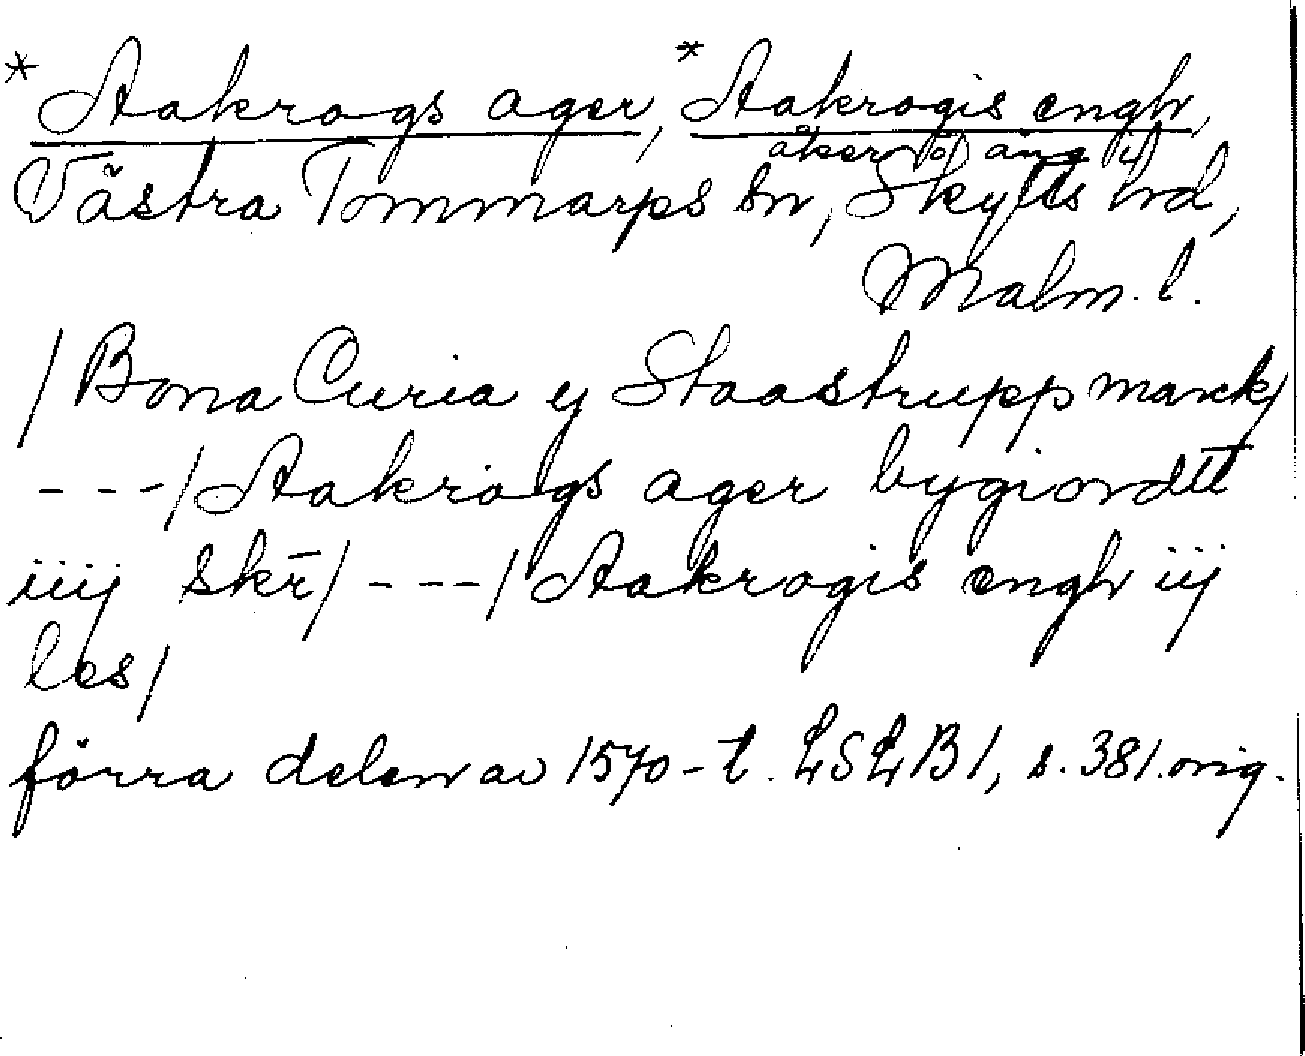 * Aakrogs ager, * Aakrogis engh,
åker o äng i
Västra Tommarps sn, Skytts hd,
Malm. l.
/ Bona Curia y Staastrupp marck/
- - -/ Aakrogs ager bygiordtt
iiij skr̄/ - - -/ Aakrogis engh iij
les/
förra delen av 1570-t. LSLB1, s. 381. orig.